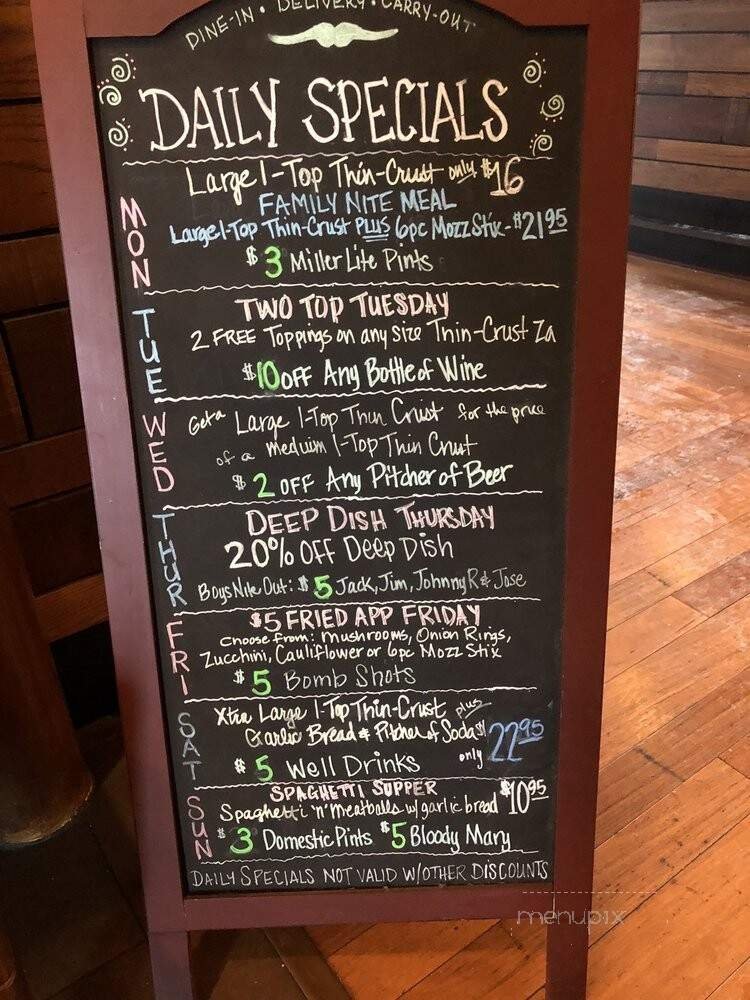 DINE-IN • DELIVERY • CARRY-OUT
DAILY SPECIALS
MON
Large 1-Top Thin-Crust only $16
FAMILY NITE MEAL
Large 1-Top Thin-Crust PLUS 6pc Mozz Stix - $21.95
$3 Miller Lite Pints
TUE
TWO TOP TUESDAY
2 FREE Toppings on any size Thin-Crust Za
$10 OFF Any Bottle of Wine
WED
Get a Large 1-Top Thin Crust for the price
of a meduim 1-Top Thin Crust
$2 OFF Any Pitcher of Beer
THUR
DEEP DISH THURSDAY
20% OFF Deep Dish
Boys Nite Out: $5 Jack, Jim, Johnny R & Jose
FRI
$5 FRIED APP FRIDAY
Choose from: Mushrooms, Onion Rings,
Zucchini, Cauliflower or 6pc Mozz Stix
$5 Bomb Shots
SAT
Xtra Large 1-Top Thin-Crust plus
Garlic Bread & Pitcher of Soda only 22.95
$5 Well Drinks
SUN
SPAGHETTI SUPPER $10.95
Spaghetti 'n' Meatballs w/ garlic bread
$3 Domestic Pints $5 Bloody Mary
DAILY SPECIALS NOT VALID W/OTHER DISCOUNTS
menupix